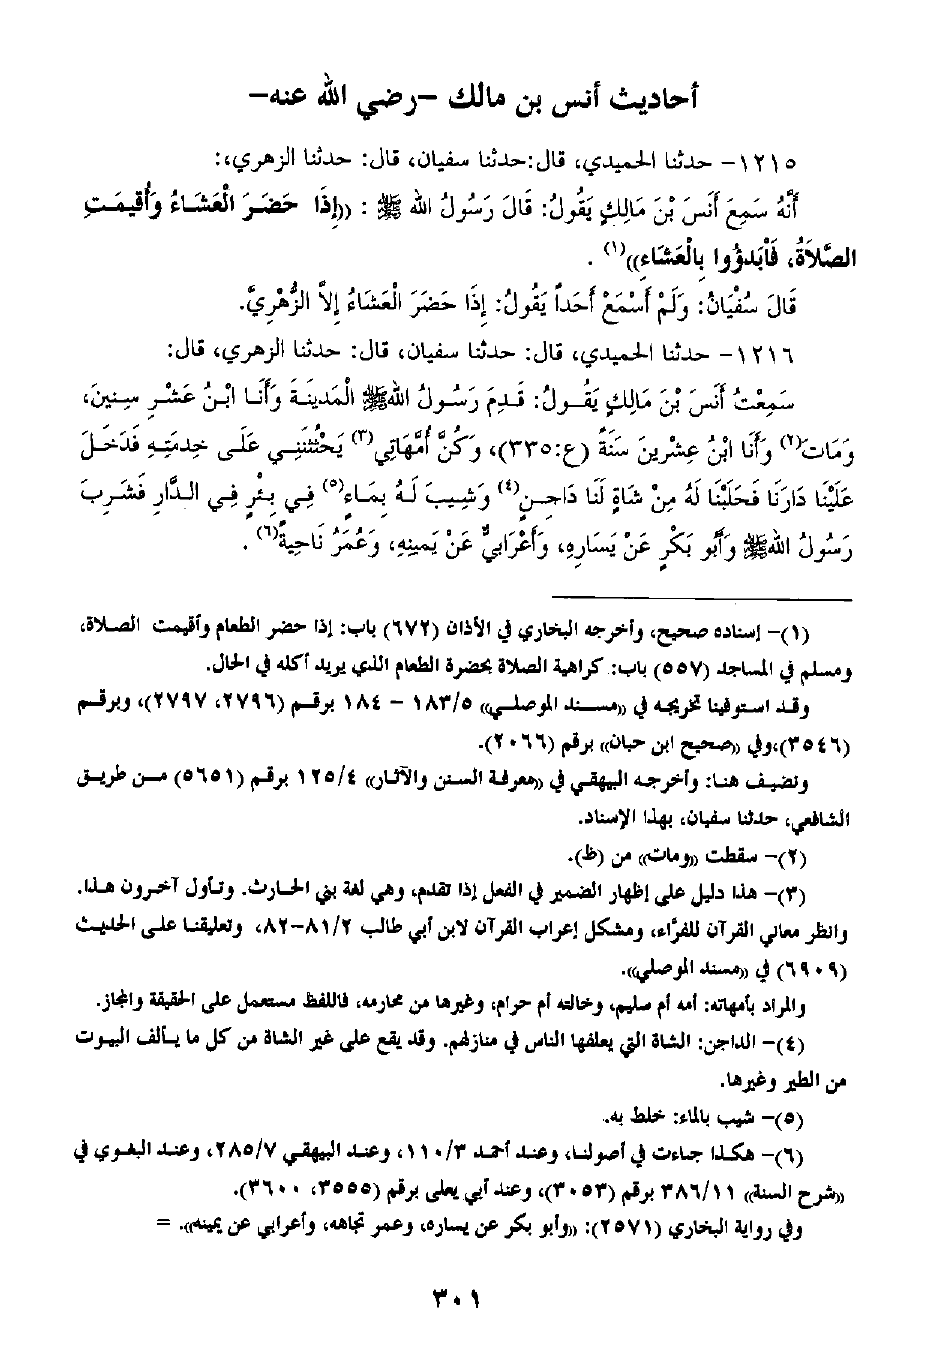 أحاديث أنس بن مالك –رضي الله عنه–
١٢١٥– حدثنا الحميدي، قال:حدثنا سفيان، قال: حدثنا الزهري،:
أَنَّهُ سَمِعَ أَنَسَ بْنَ مَالِكٍ يَقُولُ: قَالَ رَسُولُ الله ﷺ : ((إِذَا حَضَرَ الْعَشَاءُ وَأُقِيمَتِ
الصَّلاَةُ، فَابْدَؤُوا بِالْعَشَاءِ))(١) .
قَالَ سُفْيَانُ: وَلَمْ أَسْمَعْ أَحَداً يَقُولُ: إِذَا حَضَرَ الْعَشَاءُ إِلاَّ الزُّهْرِيَّ.
١٢١٦– حدثنا الحميدي، قال: حدثنا سفيان، قال: حدثنا الزهري، قال:
سَمِعْتُ أَنَسَ بْنَ مَالِكٍ يَقُولُ: قَدِمَ رَسُولُ اللهﷺ الْمَدِينَةَ وَأَنَا ابْنُ عَشْرِ سِنِينَ،
وَمَاتَ(٢) وَأَنَا ابْنُ عِشْرِينَ سَنَةً (ع:٣٣٥)، وَكُنَّ أُمَّهَاتِي(٣) يَحْثُثْنَنِي عَلَى خِدْمَتِهِ فَدَخَلَ
عَلَيْنَا دَارَنَا فَحَلَبْنَا لَهُ مِنْ شَاةٍ لَنَا دَاجِنٍ(٤) وَشِيبَ لَهُ بِمَاءٍ(٥) فِي بِئْرٍ فِي الدَّارِ فَشَرِبَ
رَسُولُ اللهﷺ وَأَبُو بَكْرٍ عَنْ يَسَارِهِ، وَأَعْرَابِيٌّ عَنْ يَمِينِهِ، وَعُمَرُ نَاحِيَةً(٦) .
(١)– إسناده صحيح، وأخرجه البخاري في الأذان (٦٧٢) باب: إذا حضر الطعام وأقيمت الصلاة،
ومسلم في المساجد (٥٥٧) باب: كراهية الصلاة بحضرة الطعام الذي يريد أكله في الحال.
وقد استوفينا تخريجه في ((مسند الموصلي)) ١٨٣/٥ – ١٨٤ برقم (٢٧٩٦، ٢٧٩٧)، وبرقم
(٣٥٤٦)،وفي ((صحيح ابن حبان)) برقم (٢٠٦٦).
ونضيف هنا: وأخرجه البيهقي في ((معرفة السنن والآثار)) ١٢٥/٤ برقم (٥٦٥١) من طريق
الشافعي، حدثنا سفيان، بهذا الإسناد.
(٢)– سقطت ((ومات)) من (ظ).
(٣)– هذا دليل على إظهار الضمير في الفعل إذا تقدم، وهي لغة بني الحارث. وتأول آخرون هذا.
وانظر معاني القرآن للفرَّاء، ومشكل إعراب القرآن لابن أبي طالب ٨١/٢–٨٢، وتعليقنا على الحديث
(٦٩٠٩) في ((مسند الموصلي)).
والمراد بأمهاته: أمه أم سليم، وخالته أم حرام، وغيرها من محارمه، فاللفظ مستعمل على الحقيقة والمجاز.
(٤)– الداجن: الشاة التي يعلفها الناس في منازلهم. وقد يقع على غير الشاة من كل ما يألف البيوت
من الطير وغيرها.
(٥)– شيب بالماء: خلط به.
(٦)– هكذا جاءت في أصولنا، وعند أحمد ١١٠/٣، وعند البيهقي ٢٨٥/٧، وعند البغوي في
((شرح السنة)) ٣٨٦/١١ برقم (٣٠٥٣)، وعند أبي يعلى برقم (٣٥٥٥، ٣٦٠٠).
وفي رواية البخاري (٢٥٧١): ((وأبو بكر عن يساره، وعمر تجاهه، وأعرابي عن يمينه)). =
٣٠١